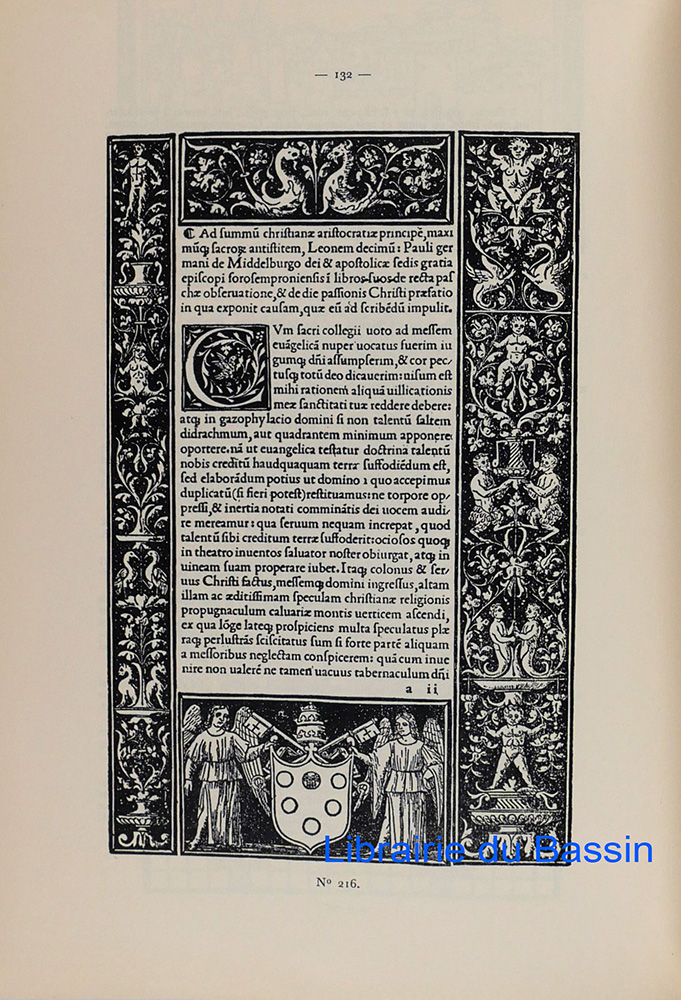 — 132 —
⁌ Ad summū christianæ aristocratiæ principē, maxi
mūq; sacroꝝ antistitem, Leonem decimū: Pauli ger
mani de Middelburgo dei & apostolicæ sedis gratia
episcopi forosemproniensis ī libros suos de recta pas
chæ obseruatione, & de die passionis Christi præfatio
in qua exponit causam, quæ eū ad scribēdū impulit.
CVm sacri collegii uoto ad messem
euāgelicā nuper uocatus fuerim iu
gumq; dñi assumpserim, & cor pec/
tusq; totū deo dicauerim: uisum est
mihi rationem aliquā uillicationis
meæ sanctitati tuæ reddere debere:
atq; in gazophylacio domini si non talentū saltem
didrachmum, aut quadrantem minimum apponere
oportere. nā ut euangelica testatur doctrina talentū
nobis creditū haudquaquam terræ suffodiēdum est,
sed elaborādum potius ut domino a quo accepimus
duplicatū (si fieri potest) restituamus: ne torpore op/
pressi, & inertia notati comminātis dei uocem audi/
re mereamur: qua seruum nequam increpat, quod
talentū sibi creditum terræ suffoderit: ociosos quoq;
in theatro inuentos saluator noster obiurgat, atq; in
uineam suam properare iubet. Itaq; colonus & ser/
uus Christi factus, messemq; domini ingressus, altam
illam ac æditissimam speculam christianæ religionis
propugnaculum caluariæ montis uerticem ascendi,
ex qua lōge lateq; prospiciens multa speculatus plæ
raq; perlustrās sciscitatus sum si forte partē aliquam
a messoribus neglectam conspicerem: quā cum inue
nire non ualerē ne tamen uacuus tabernaculum dñi
a ii
Librairie du Bassin
Nº 216.